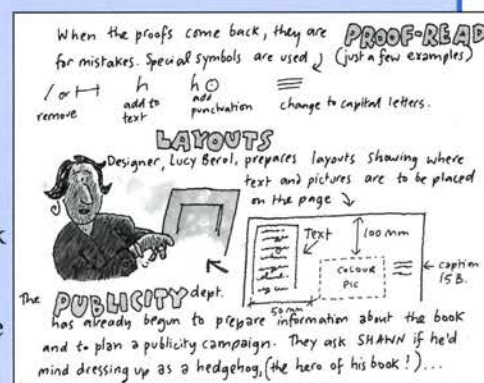 When the proofs come back, they are PROOF-READ
for mistakes. Special symbols are used (just a few examples)
/ or
remove
add to
text
add
punctuation
change to capital letters.
LAYOUTS
Designer, Lucy Berol, prepares layouts showing where
text and pictures are to be placed
on the page
Text
100 mm
COLOUR
PIC
caption
15B.
50mm
The PUBLICITY dept.
has already begun to prepare information about the book
and to plan a publicity campaign. They ask SHAWN if he'd
mind dressing up as a hedgehog, (the hero of his book!)...
k
e